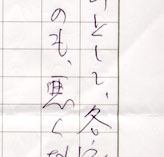 として、冬
のも、悪くな